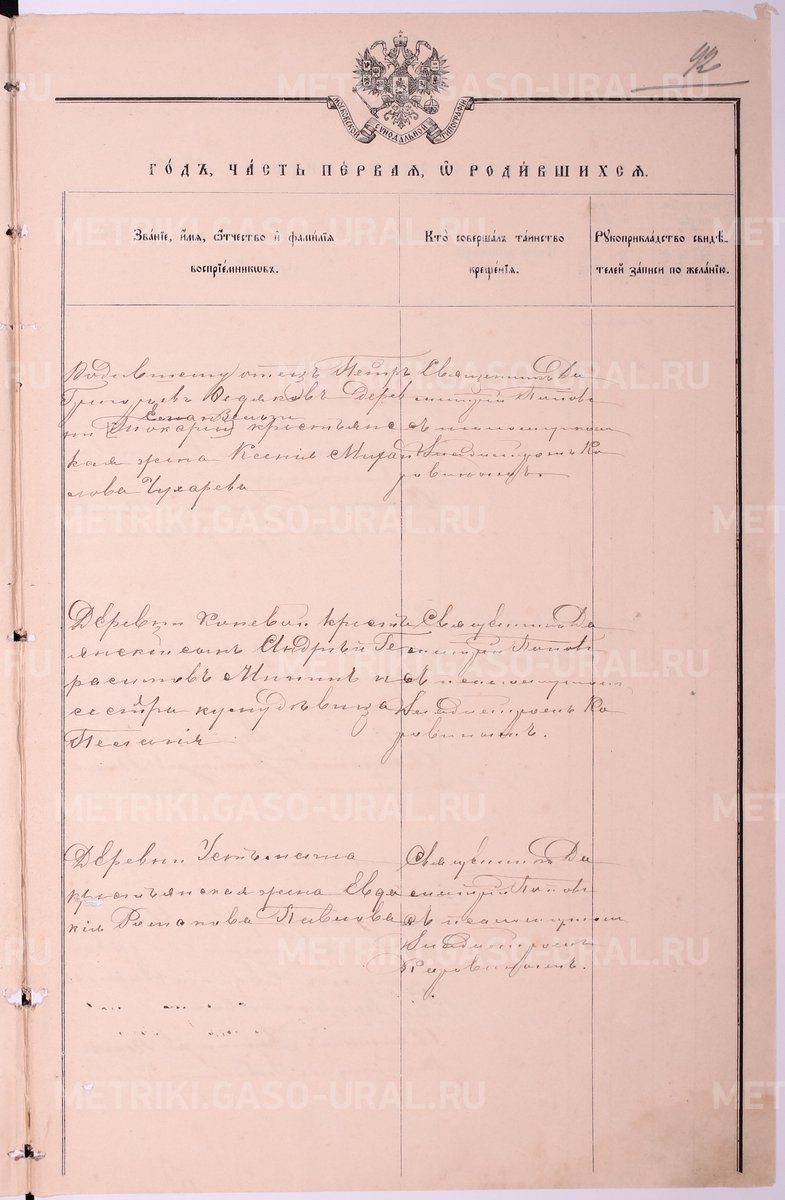 92
МОСКОВСКОЙ СѴНОДАЛЬНОЙ ТИПОГРАФІИ
ГО́ДЪ, ЧА́СТЬ ПЕ́РВАЯ, Ѽ РОДИ́ВШИХСЯ.
Зва́нїе, и҆́мя, ѻ҆́тчество и҆ фами́лїя
воспрїе́мникѡвъ.
Кто̀ соверша́лъ та́инство
креще́нїя.
Рꙋкоприкла́дство свидѣ́-
телей за́писи по жела́нїю.
отецъ Петръ
Григорьевъ Редяковъ Дерев
ни крестьянс
кая жена Ксенія Михай
лова Чухарева
Священникъ Ди
митрій Поповъ
съ псаломщикомъ
Владиміромъ Ко
ровинымъ.
Деревни Коневой кресть
янскій сынъ Андрей Ге
расимовъ Мининъ и
сестра
Пелагія
Священникъ Ди
митрій Поповъ
съ псаломщикомъ
Владиміромъ Ко
ровинымъ.
Деревни
крестьянская жена Евдо
кія Романова Павлова
Священникъ Ди
митрій Поповъ
съ псаломщикомъ
Владиміромъ
Коровинымъ.
METRIKI.GASO-URAL.RU